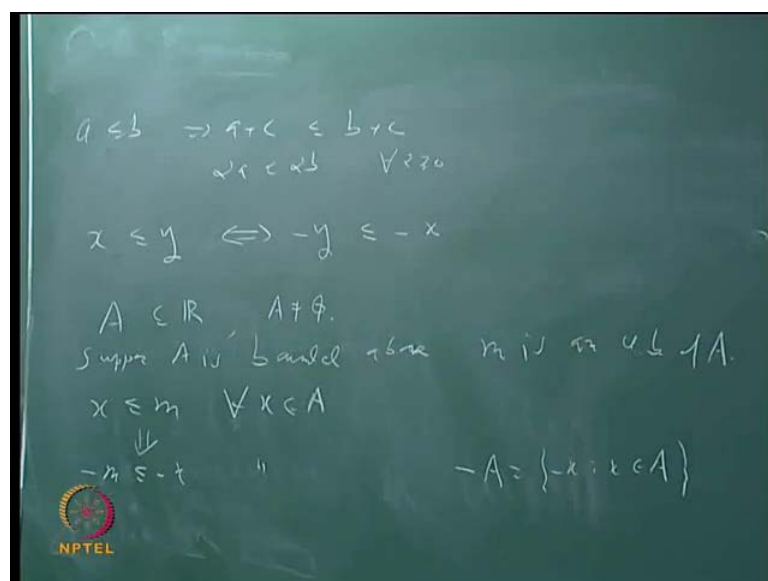 a ≤ b ⇒ a+c ≤ b+c
αa ≤ αb ∀ α≥0
x ≤ y ⇔ -y ≤ -x
A ⊆ ℝ, A ≠ φ.
Suppose A is bounded above m is an u.b. of A.
x ≤ m ∀ x ∈ A
⇓
-m ≤ -x " -A = {-x : x ∈ A}
NPTEL